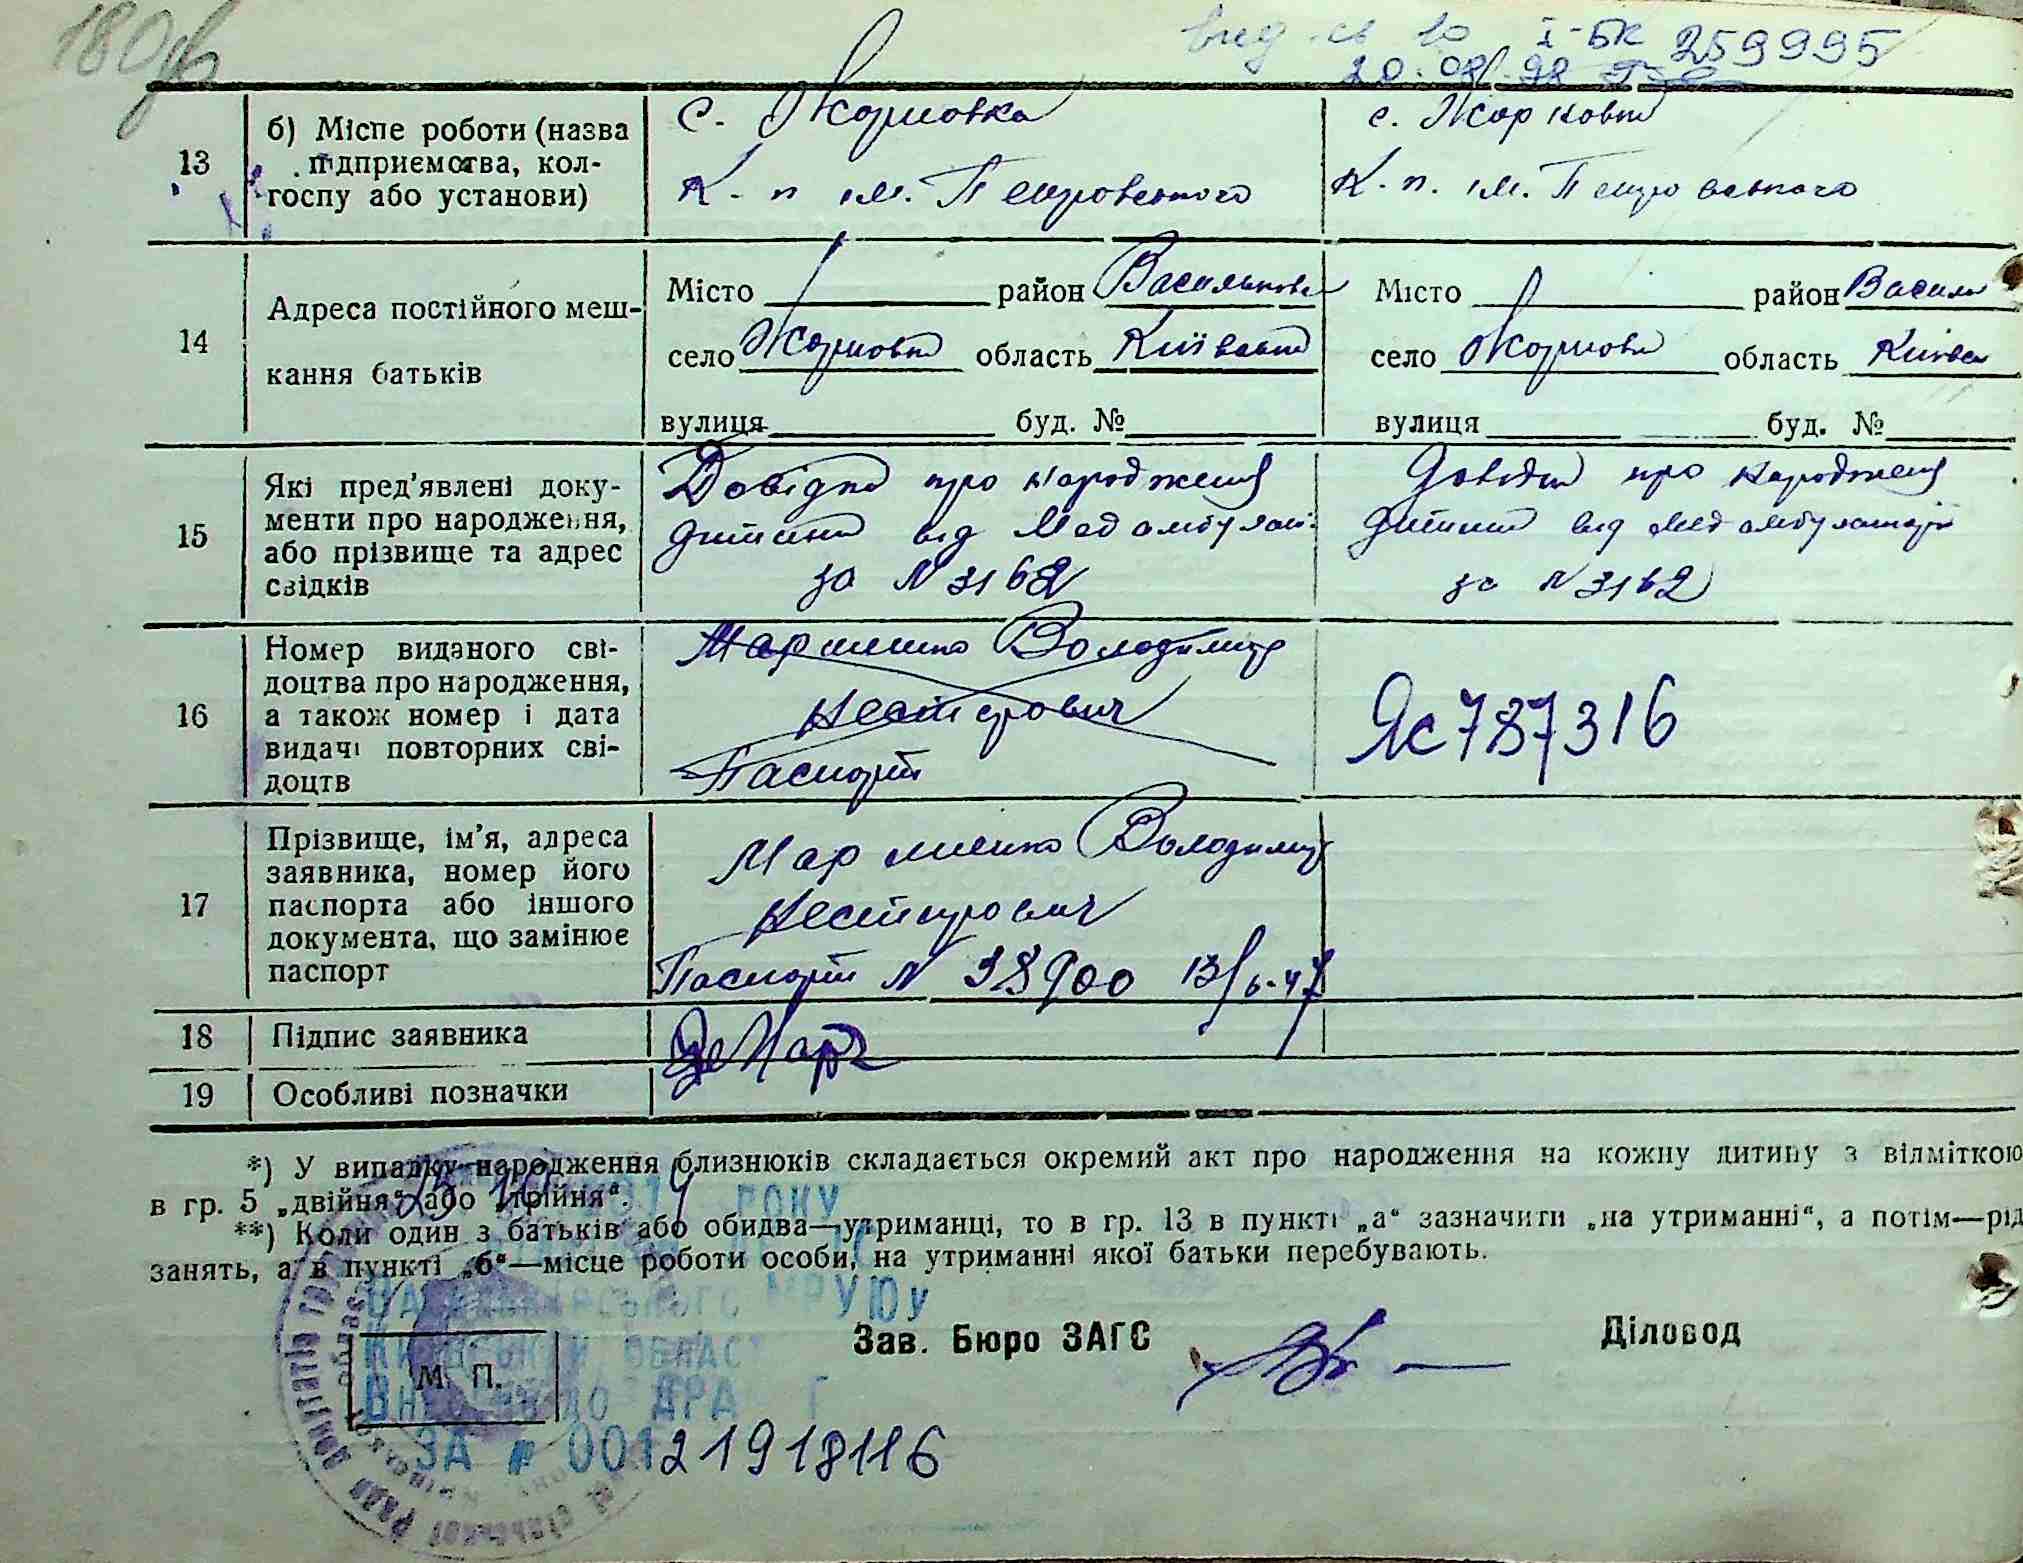 180
вид. св. ю I-БК 259995
20.08.98
13
б) Місце роботи (назва
підприємства, кол-
госпу або установи)
с. Жорновка
К-п ім. Петровського
с. Жорновка
К-п. ім. Петровського
14
Адреса постійного меш-
кання батьків
Місто район Васильків
село Жорновка область Київська
вулиця буд. №
Місто район Васильк
село Жорновка область Київськ
вулиця буд. №
15
Які пред'явлені доку-
менти про народження,
або прізвище та адрес
свідків
Довідка про народження
дитини від Медамбулат.
за N 3162
Довідка про народження
дитини від Медамбулаторії
за N 3162
16
Номер виданого сві-
доцтва про народження,
а також номер і дата
видачі повторних сві-
доцтв
Марченко Володимир
Несторович
Паспорт
Яс 787316
17
Прізвище, ім'я, адреса
заявника, номер його
паспорта або іншого
документа, що замінює
паспорт
Марченко Володимир
Несторович
Паспорт N 38900 13/6-47
18
Підпис заявника
19
Особливі позначки
*) У випадку народження близнюків складається окремий акт про народження на кожну дитину з відміткою
в гр. 5 „двійня“ або „трійня“.
**) Коли один з батьків або обидва—утриманці, то в гр. 13 в пункті „а“ зазначити „на утриманні“, а потім—рід
занять, а в пункті „б“—місце роботи особи, на утриманні якої батьки перебувають.
РОКУ
МРУЮ
Київській област
Внесений до ДРАЦСГ
ЗА № 00121918116
М. П.
Зав. Бюро ЗАГС
Діловод